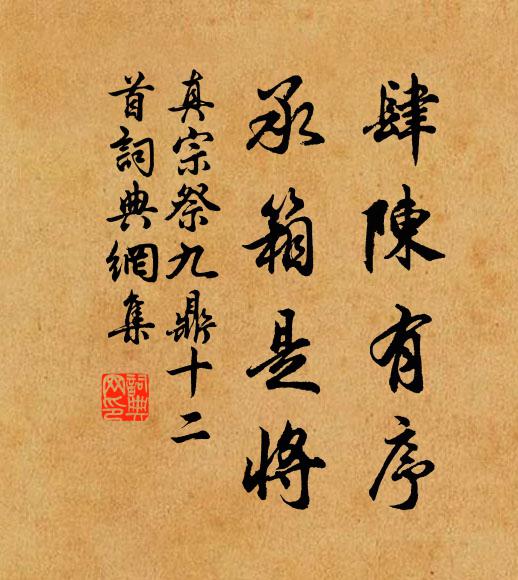 肆陳有序
承箱是將
真宗祭九鼎十二
首詞典網集
詞典網印